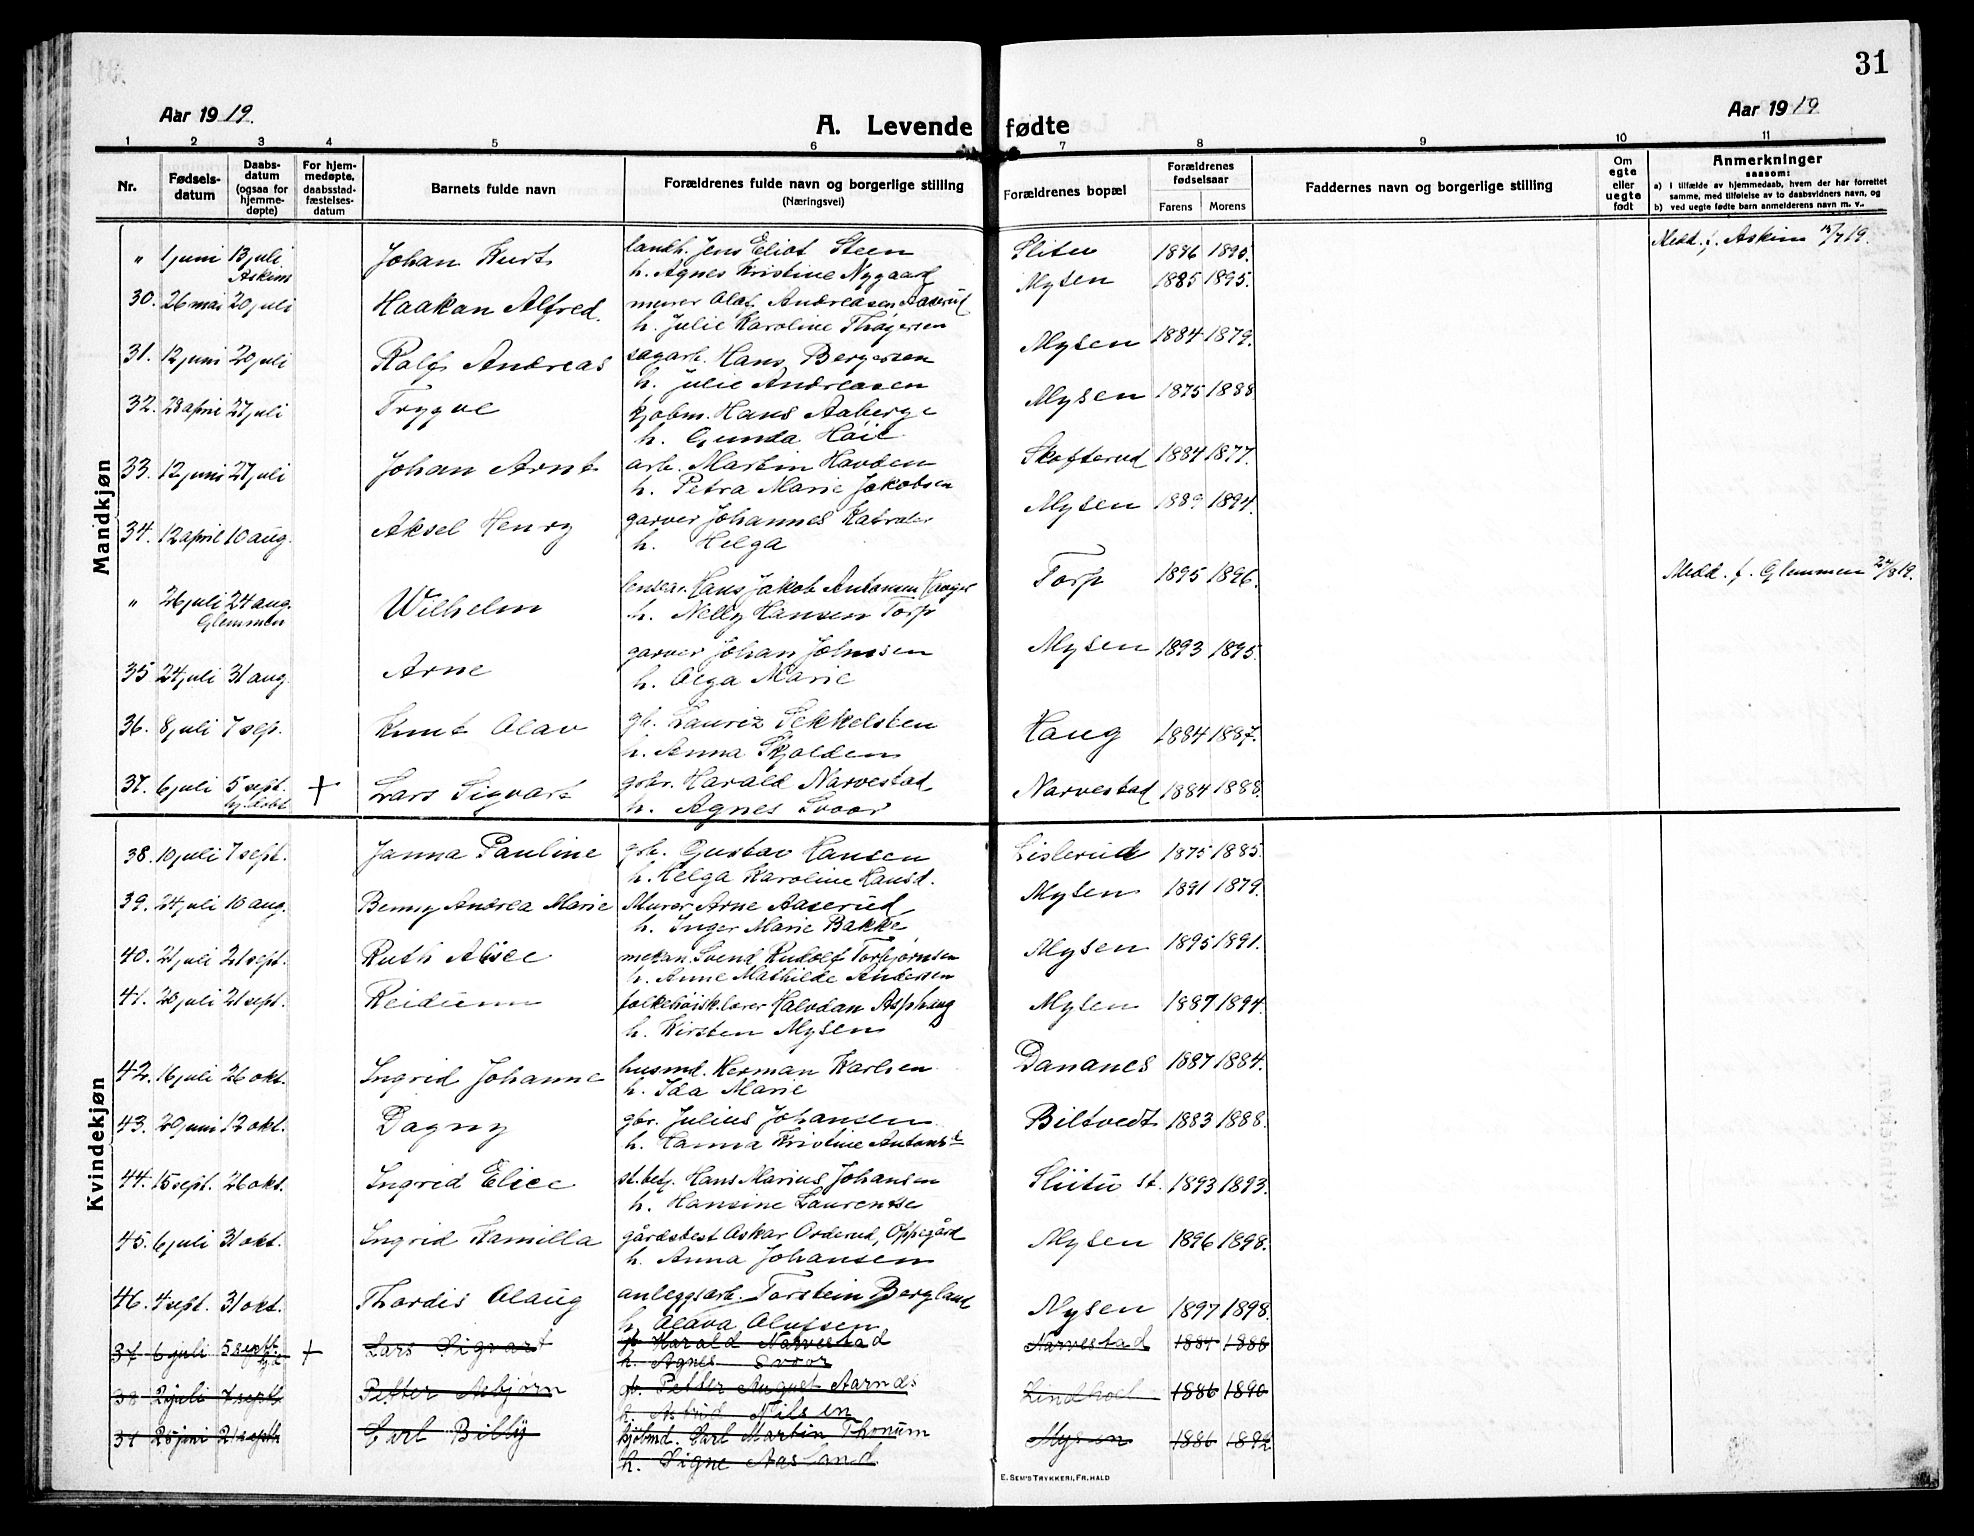 31
Aar 1919.
A. Levende fødte
Aar 1919
1 2 3 4 5 6 7 8 9 10 11
Nr.
Fødsels-datum
Daabs-datum (ogsaa for hjemme-døpte)
For hjem-medøpte, daabsstad-fæstelses-datum
Barnets fulde navn
Forældrenes fulde navn og borgerlige stilling
(Næringsvei)
Forældrenes bopæl
Forældrenes fødselsaar
Farens Morens
Faddernes navn og borgerlige stilling
Om egte eller uegte født
Anmerkninger
saasom:
a) I tilfælde av hjemmedaab, hvem der har forrettet samme, med tilføielse av to daabsvidners navn, og
b) ved uegte fødte barn anmelderens navn m. v..
Mandkjøn
" 1 juni 13 juli Askim Johan Kurt landh. Jens Eliot Steen Slitu 1896 1895. Medd. f. Askim 19.
h. Agnes Kristine Nygaard
30. 26 mai 20 juli Haakan Alfred. murer Olaf Andreasen Aaserud Mysen 1885 1895.
h. Julie Karoline Thøgersen
31. 12 juni 20 juli Ralf Andreas sagarb. Hans Bergersen Mysen 1884 1879.
h. Julie Andreasen
32. 28 april 27 juli Trygve kjøbm. Hans Aaberge Mysen 1875 1888
h. Gunda Høie
33. 12 juni 27 juli Johan Arnt arb. Martin Havden Skofterud 1884 1877.
h. Petra Marie Jakobsen
34. 12 april 10 aug. Aksel Henry garver Johannes Mysen 1889 1894.
h. Helga
" 26 juli 24 aug. Glemmen Wilhelm Hans Jakob Antonsen Torp 1895 1896. Medd. f. Glemmen 19.
h. Nelly Hansen Torp
35 24 juli 31 aug. Arne garver Johan Johnsen Mysen 1893 1895.
h. Olga Marie
36. 8 juli 7 sep. Knut Olav gb. Lauriz Sekkelsten Haug 1884 1887.
h. Anna Skjolden
37. 6 juli 5 sept. hj.døbt + Lars Sigvart gbr. Harald Narvestad Narvestad 1884 1888.
h. Agnes Svoor
Kvindekjøn
38. 10 juli 7 sept. Janna Pauline gb. Gustav Hansen Lislerud 1875 1885.
h. Helga Karoline Hansd.
39. 24 juli 10 aug. Benny Andrea Marie Murer Arne Aaserud Mysen 1891 1879.
h. Inger Marie Bakke
40. 21 juli 21 sept. Ruth Alice mekan. Svend Rudolf Torbjørnsen Mysen 1895 1891.
h. Anne Mathilde Andersen
41. 20 juli 21 sept. Reidunn folkehøisk.lærer Halvdan Asphaug Mysen 1887 1894.
h. Kirsten Mysen
42. 16 juli 26 okt. Ingrid Johanne husmd. Herman Karlsen Dananes 1887 1884.
h. Ida Marie
43. 20 juni 12 okt. Dagny gbr. Julius Johansen Biltvedt 1883 1888.
h. Hanna Kristine Antonsd
44. 15 sept. 26 okt. Ingrid Elise st.betj. Hans Marius Johansen Sliitu st. 1893 1893.
h. Hansine Laurentse
45. 6 juli 31 okt. Ingrid Kamilla gårdsbest Oskar Orderud, Oppegård Mysen 1896 1898.
h. Anna Johansen
46. 4 sept. 31 okt. Thordis Olaug anleggsarb. Torstein Bergland Mysen 1897 1898.
h. Olava Olufsen
37 6 juli 5 sept. + Lars Sigvart gb Harald Narvestad Narvestad 1884 1888
h. Agnes Svoor
38 2 juli 7 septb Petter Asbjørn gb. Petter August Aarnes Lindhol 1886 1890
h. Astrid Nilsen
39 25 juni 21 septb Carl Billy kjøbmd. Carl Martin Thorüm Mysen 1886 1892
h. Signe Aasland
E. SEM'S TRYKKERI, FR. HALD